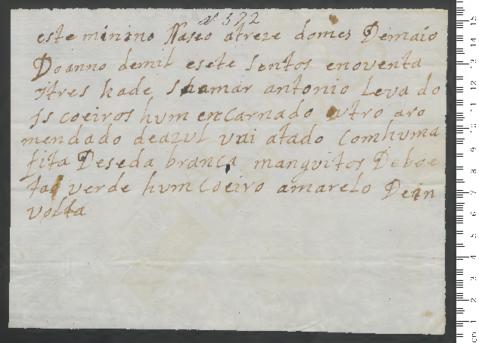 nº 522
este minino Naseo atreze domes Demaio
Doanno demil esete sentos enoventa
itres hade shamar antonio Leva do
is coeiros hum encarnado outro aro
mendado deazul vai atado Comhuma
fita Deseda branca manguitos Debae
tas verde hum Coeiro amarelo Dein
volta